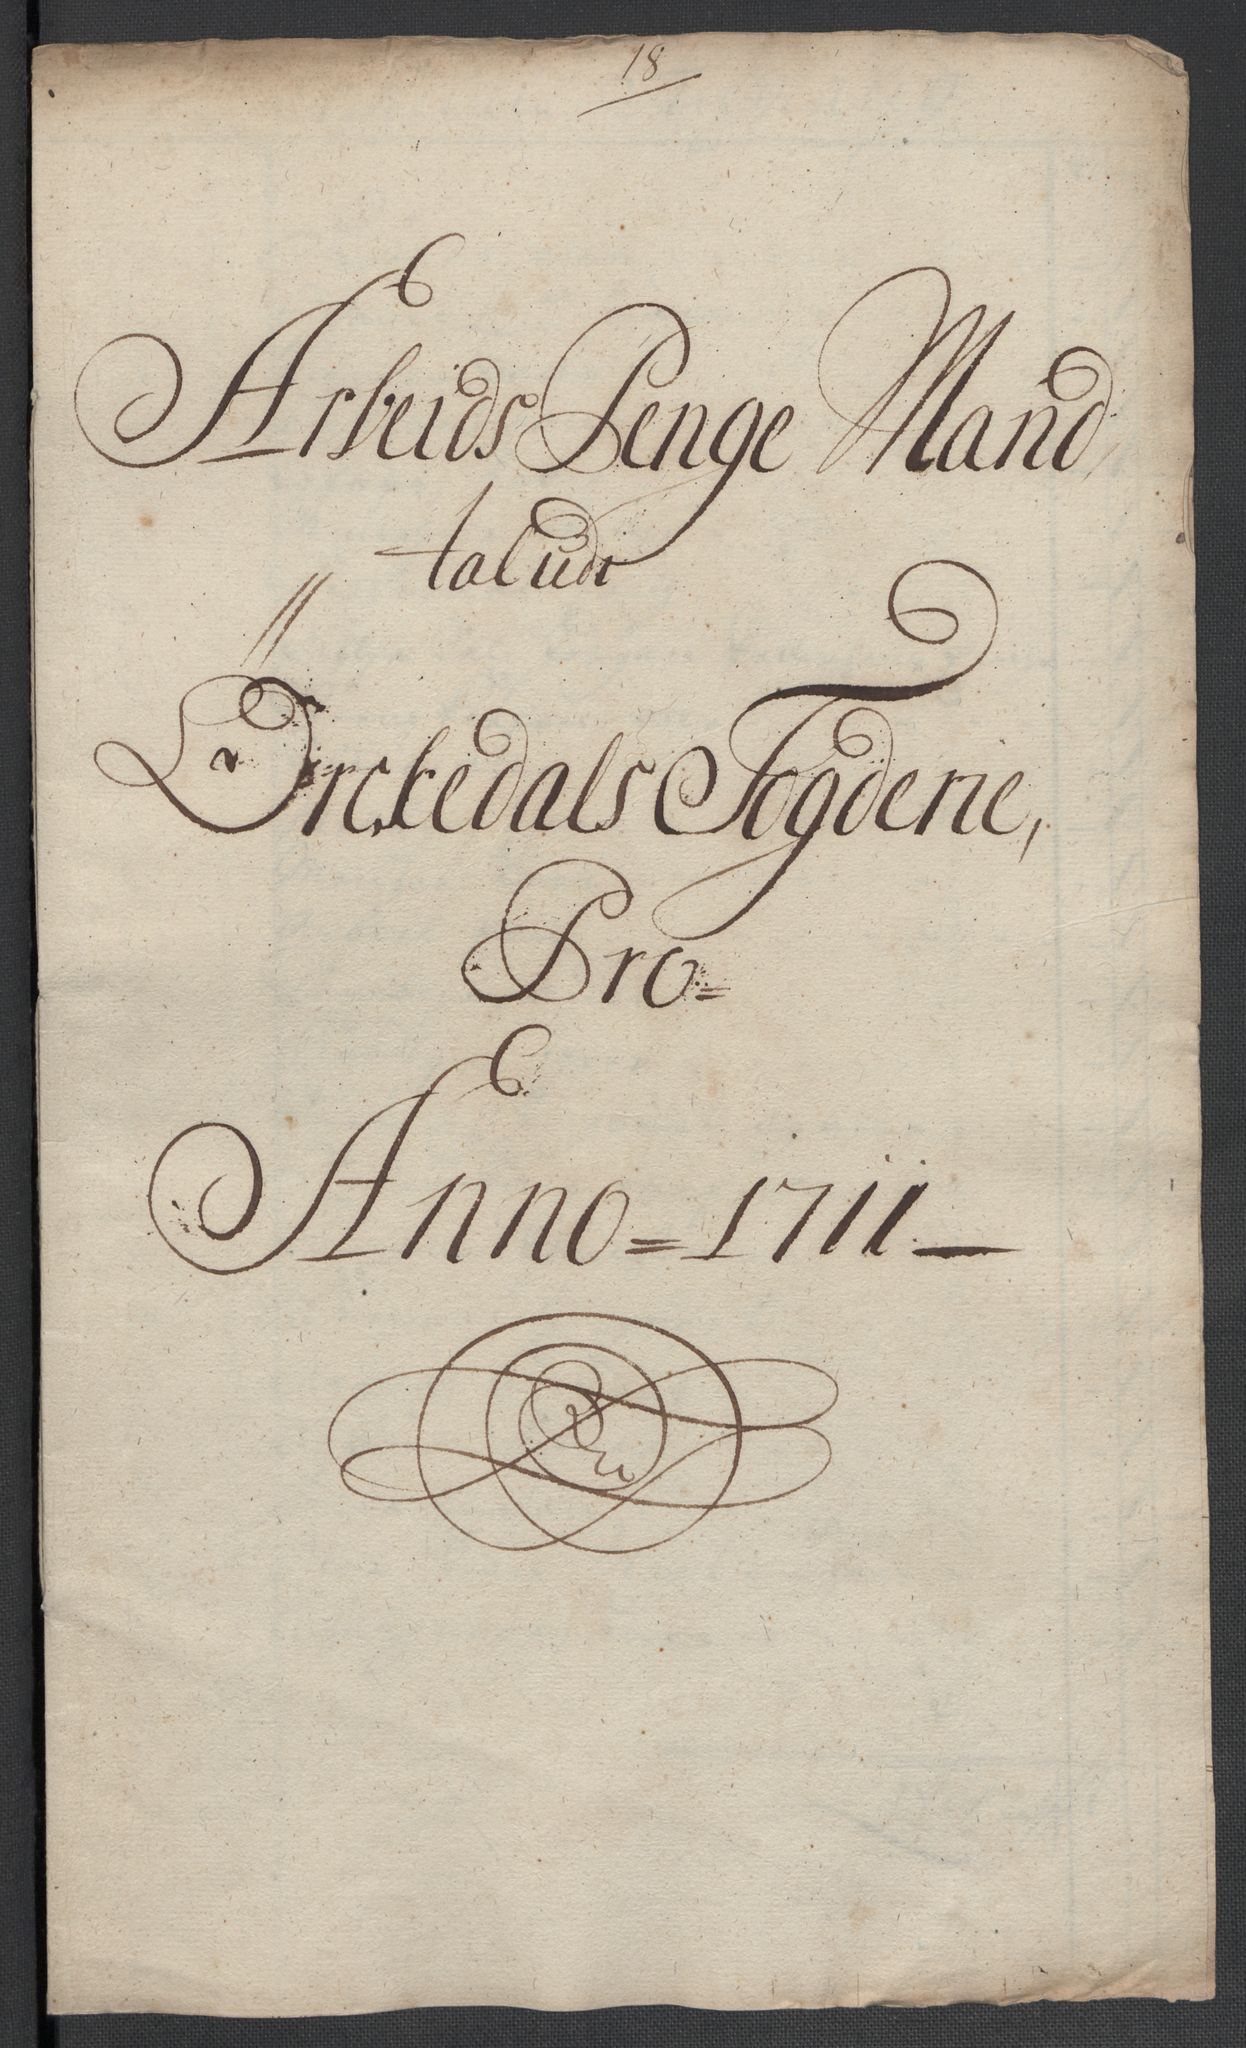 18
Arbeids Penge Mand,
tal udi
Örckedals Fogderie,
Pro=
Anno = 1711 —